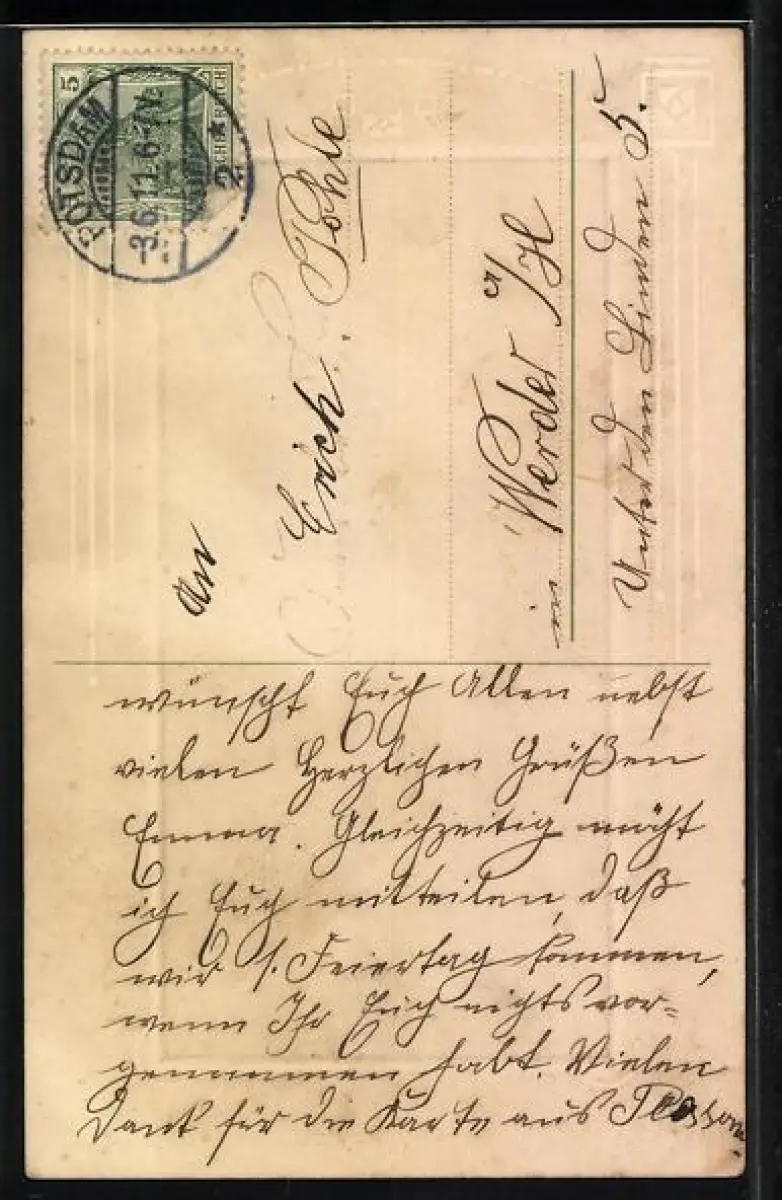 5
DEUTSCHES REICH
POTSDAM
3.6.11.6-7N.
* 2.
An
Erich Pöhle
in Werder a/H
Unter den Linden 5.
wünscht Euch Allen nebst
vielen Herzlichen Grüßen
Emma. Gleichzeitig möcht
ich Euch mitteilen, daß
wir 1. Feiertag kommen,
wenn Ihr Euch nichts vor=
genommen habt. Vielen
Dank für die Karte aus